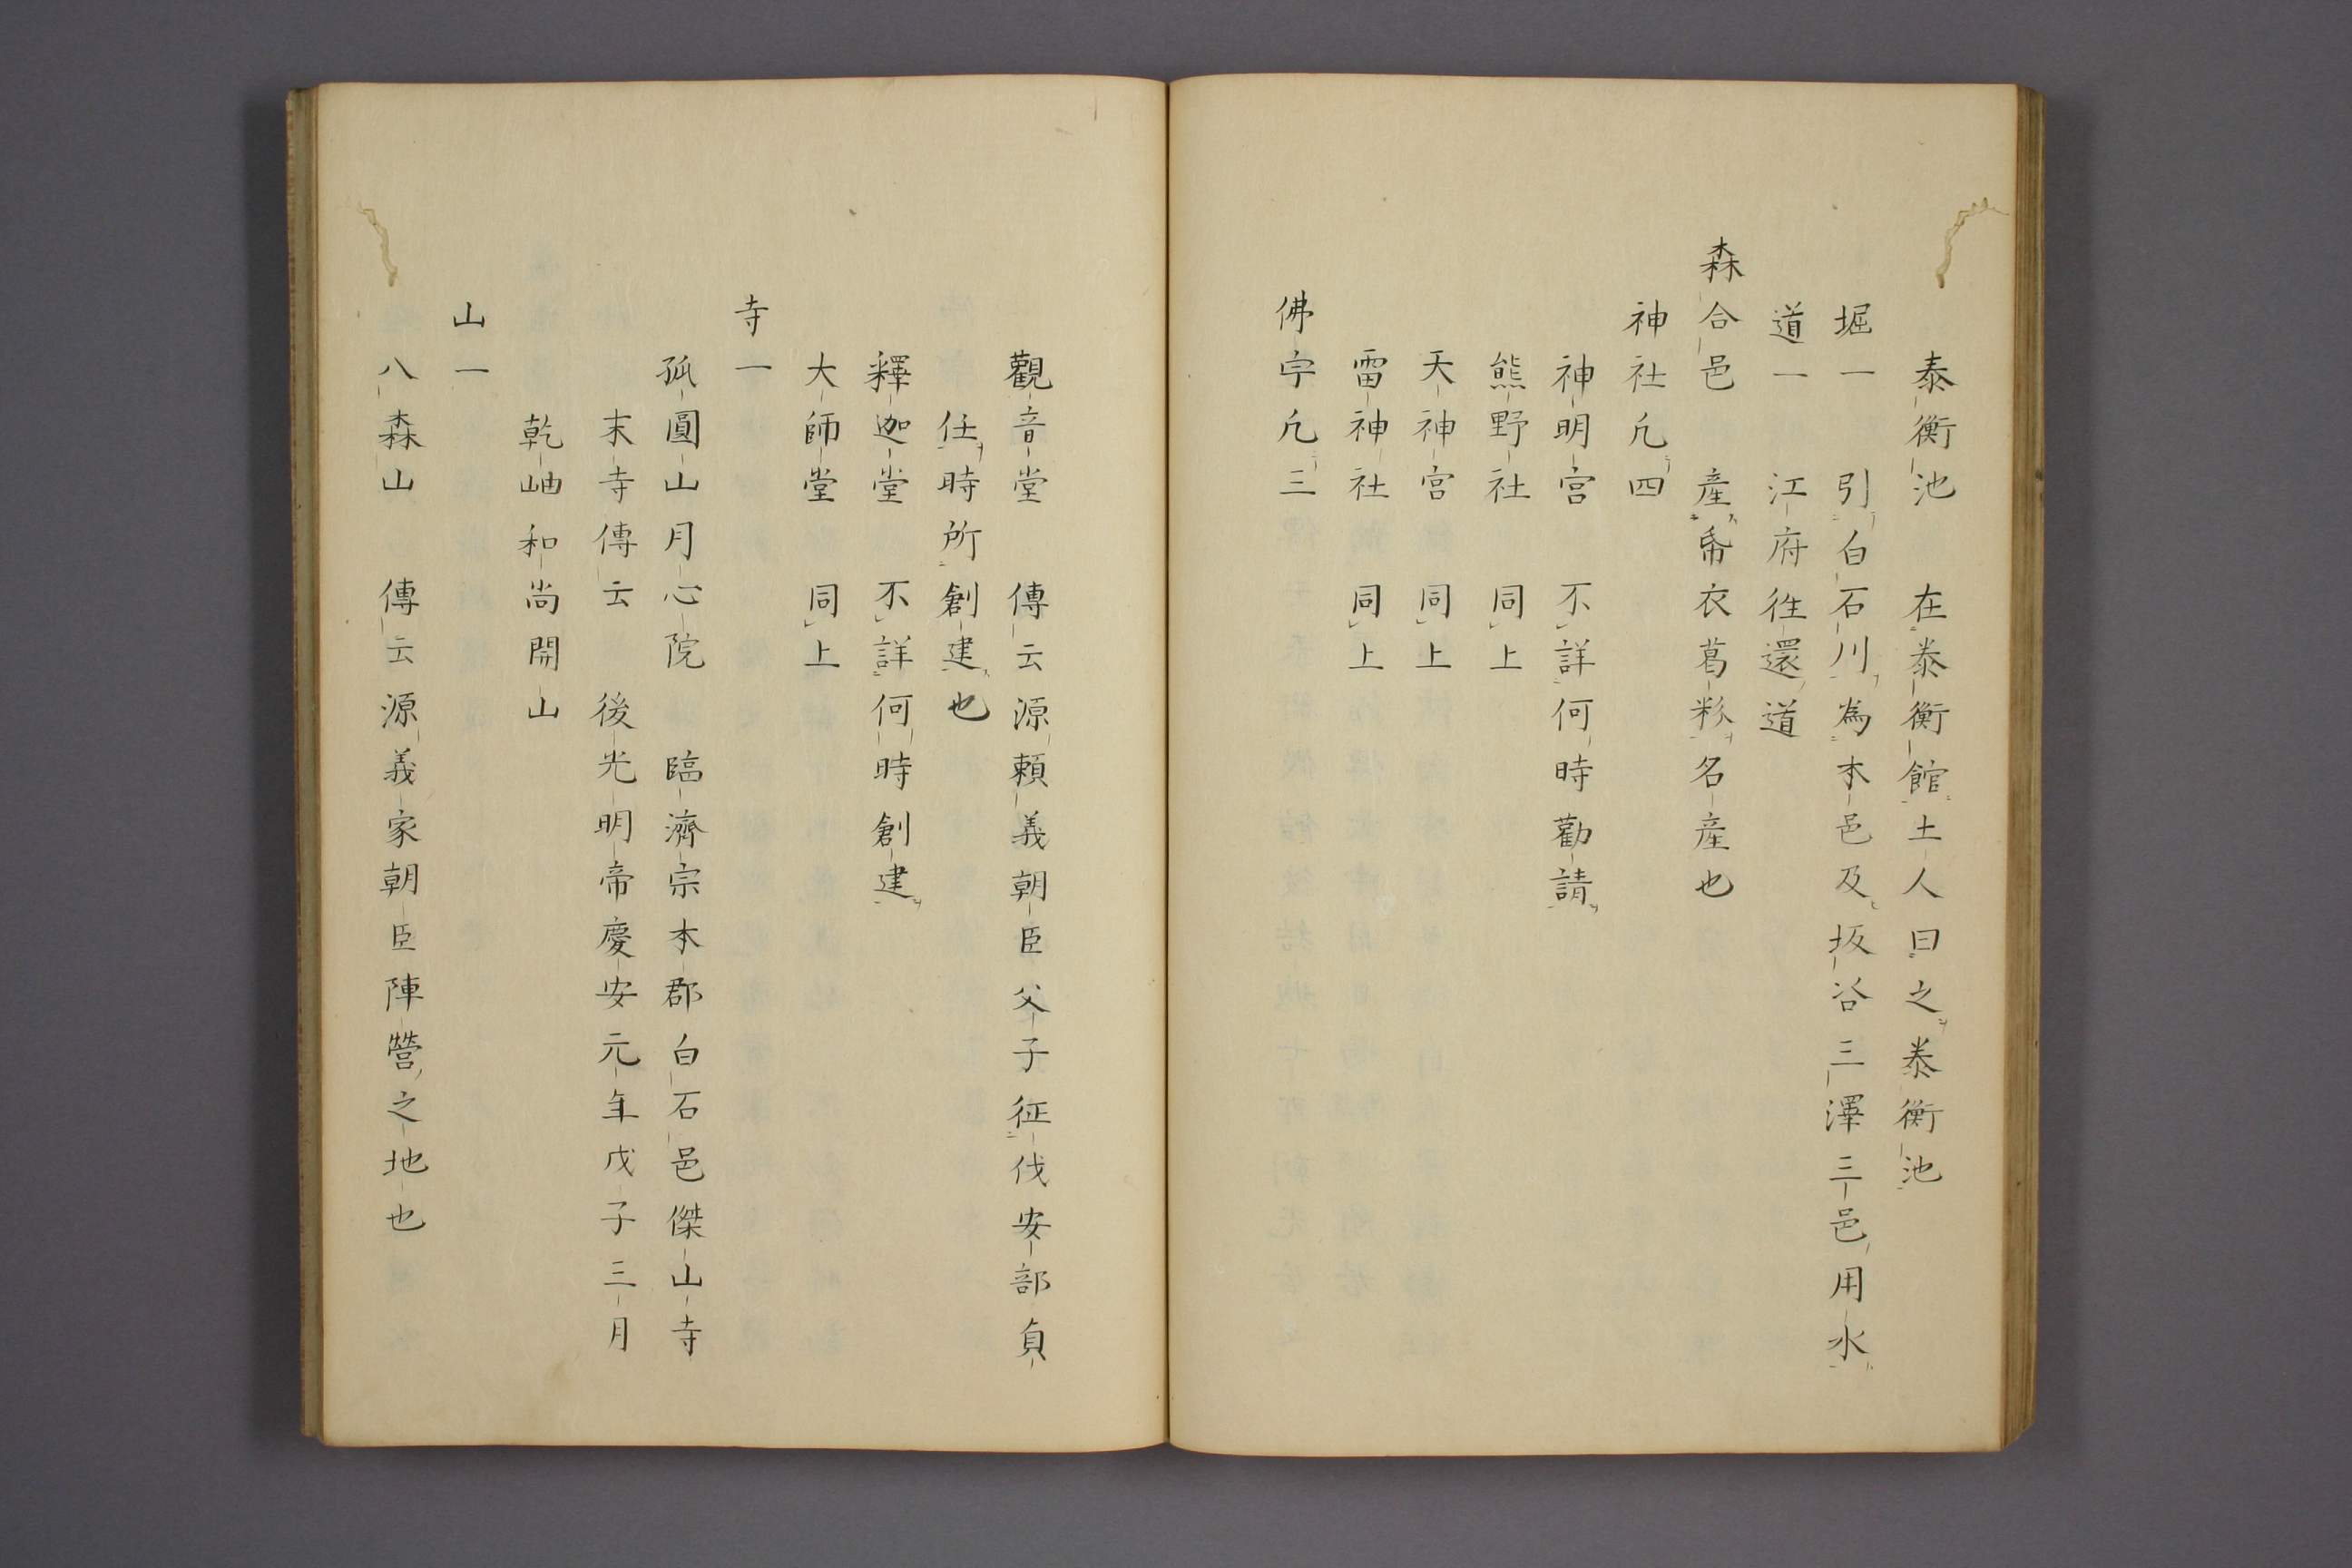 泰衡池　在泰衡館土人曰之泰衡池
堀一　引白石川為本邑及坂谷三澤三邑用水
道一　江府徃還道
森合邑　産帋衣葛粉名産也
神社凢四
神明宮　不詳何時勸請
熊野社　同上
天神宮　同上
雷神社　同上
佛宇凢三
觀音堂　傳云源頼義朝臣父子征伐安部貞
任時所創建也
釋迦堂　不詳何時創建
大師堂　同上
寺一
孤圓山月心院　臨濟宗本郡白石邑傑山寺
末寺傳云　後光明帝慶安元年戊子三月
乾岫和尚開山
山一
八森山　傳云源義家朝臣陣營之地也